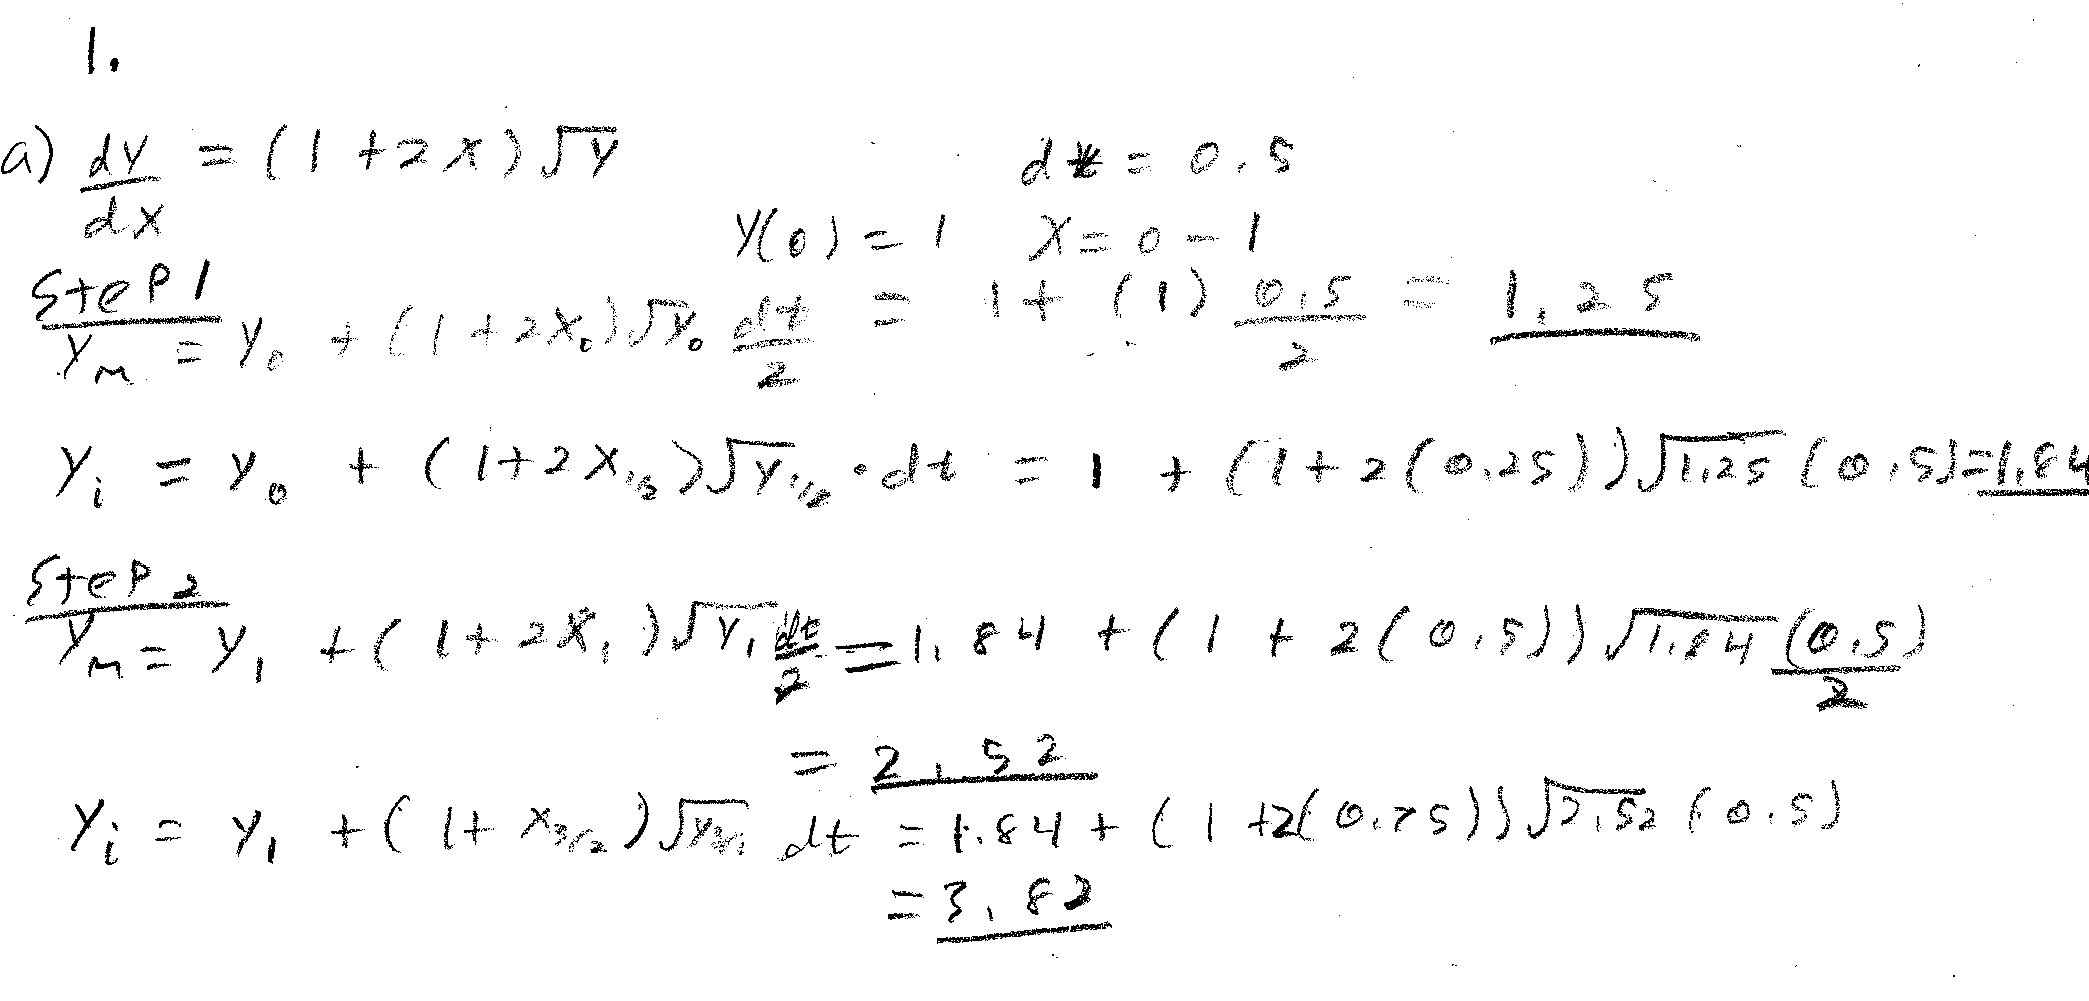 1.
a) dy/dx = (1+2x)√y    dx = 0.5
y(0) = 1    x = 0 - 1
Step 1
Ym = Y0 + (1+2x0)√Y0 dt/2 = 1 + (1) 0.5/2 = 1.25
Yi = Y0 + (1+2x1/2)√Y1/2 · dt = 1 + (1+2(0.25))√1.25 (0.5) = 1.84
Step 2
Ym = Y1 + (1+2x1)√Y1 dt/2 = 1.84 + (1+2(0.5))√1.84 (0.5)/2
= 2.52
Yi = Y1 + (1+x3/2)√Y3/2 dt = 1.84 + (1+2(0.75))√2.52 (0.5)
= 3.82